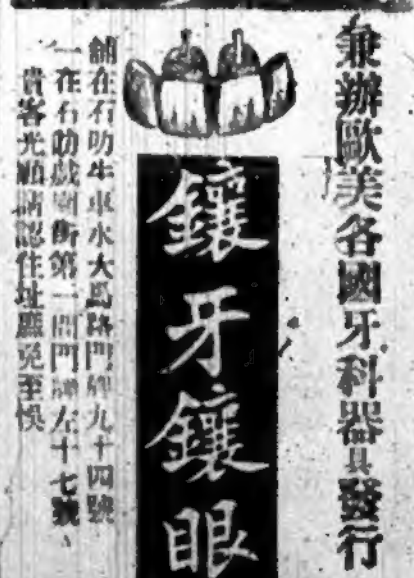 兼辦歐美各國牙科器具發行
鑲牙鑲眼
舖在石叻牛車水大馬路門牌九十四號
一在石叻戲園街第一間門牌左十七號
貴客光顧請認住址庶免至悞